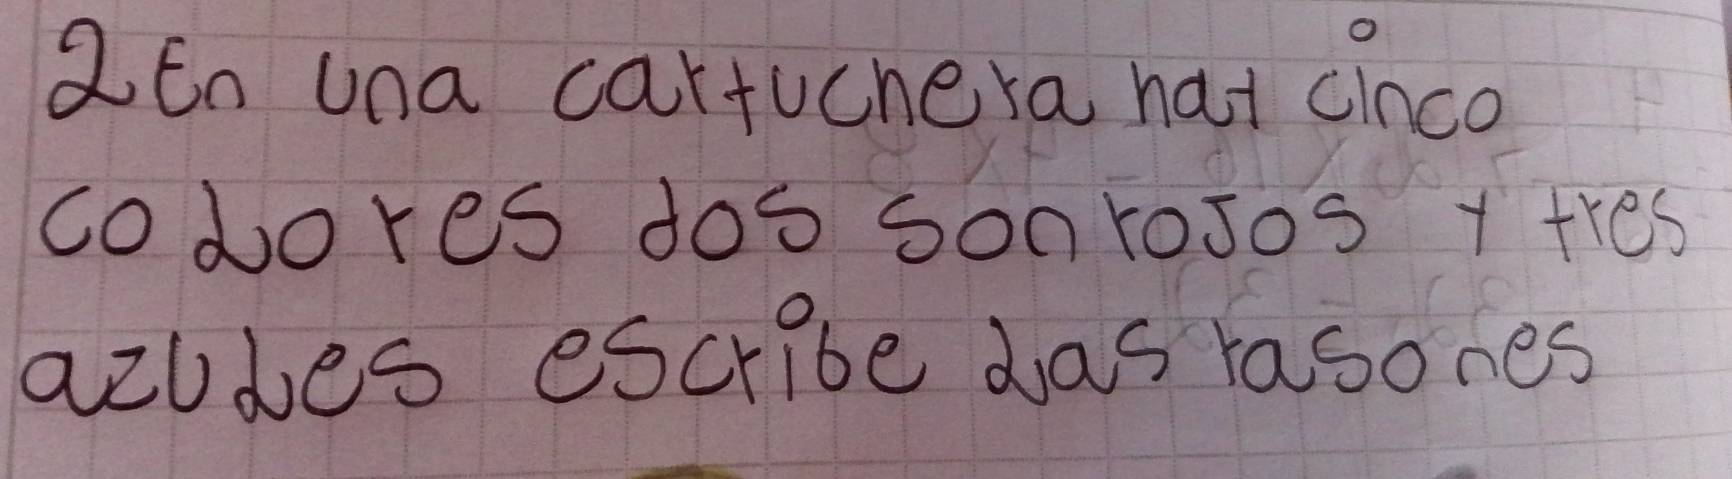 2 En una cartuchera hay cinco
colores dos son rojos y tres
azules escribe las rasones